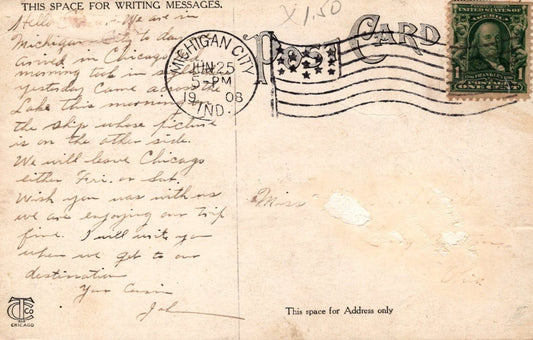 THIS SPACE FOR WRITING MESSAGES.
X1.50
POST CARD
UNITED STATES OF
AMERICA
FRANKLIN
1 1
ONE CENT
MICHIGAN CITY
JUN 25
5 - PM
1908
IND.
Hello We are in
Michigan City to day
arrived in Chicago
morning
yesterday Came
Lake this morning
the ship whose picture
is on the other side.
We will leave Chicago
either Fri. or Sat.
Wish you was with us
we are enjoying our trip
fine. I will write you
when we get to our
destination
Your Cousin
John
Miss
Wis.
CTCo
CHICAGO
This space for Address only